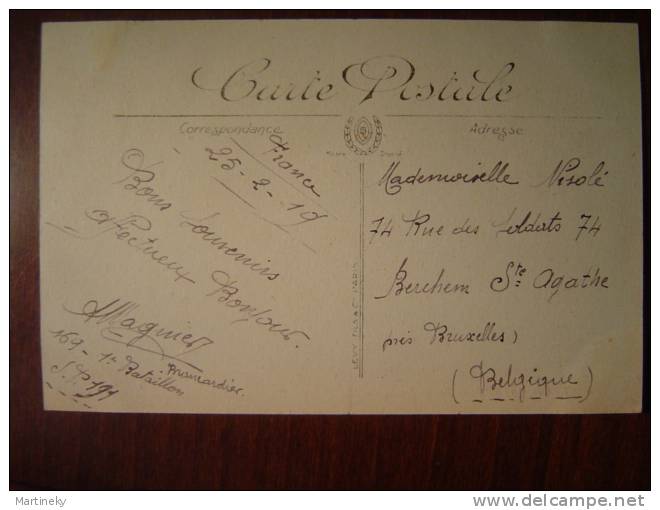 Carte Postale
Correspondance
Adresse
France
25-2-19
Bons Souvenirs
Affectueux Bonjour.
AMagnier
Brancardier
169 - 1r Bataillon
S.P. 191
Mademoiselle Nisolé
74 Rue des Soldats 74
Berchem Ste Agathe
près Bruxelles)
(Belgique)
LEVY FILS & Cie PARIS
Martineky
delcampe.net